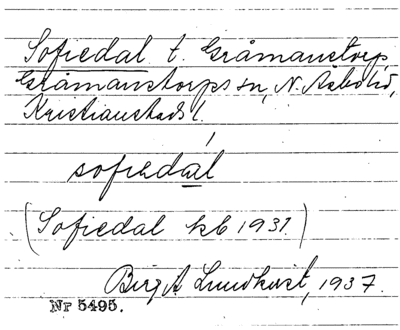 Sofiedal t. Gråmanstorp
Gråmanstorps sn, N. Åsbo hd,
Kristianstads l.
sofiedál
(Sofiedal kb 1931)
Birg A Lundkvist, 1937.
Nr 5495.